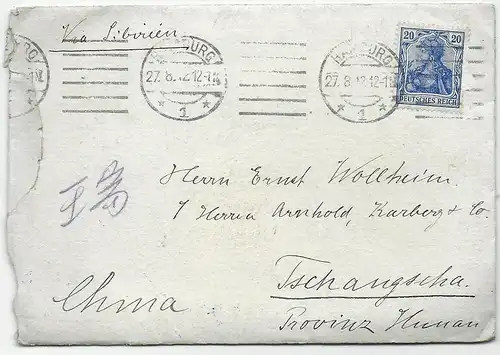 Via Sibirien
HAMBURG
27.8.12.12-1N
* 1 *
HAMBURG
27.8.12.12-1N
* 1 *
20 20
DEUTSCHES REICH
Herrn Ernst Wollheim
Herrn Arnhold, Karberg & Co.
Tschangscha.
China
Provinz Hunan